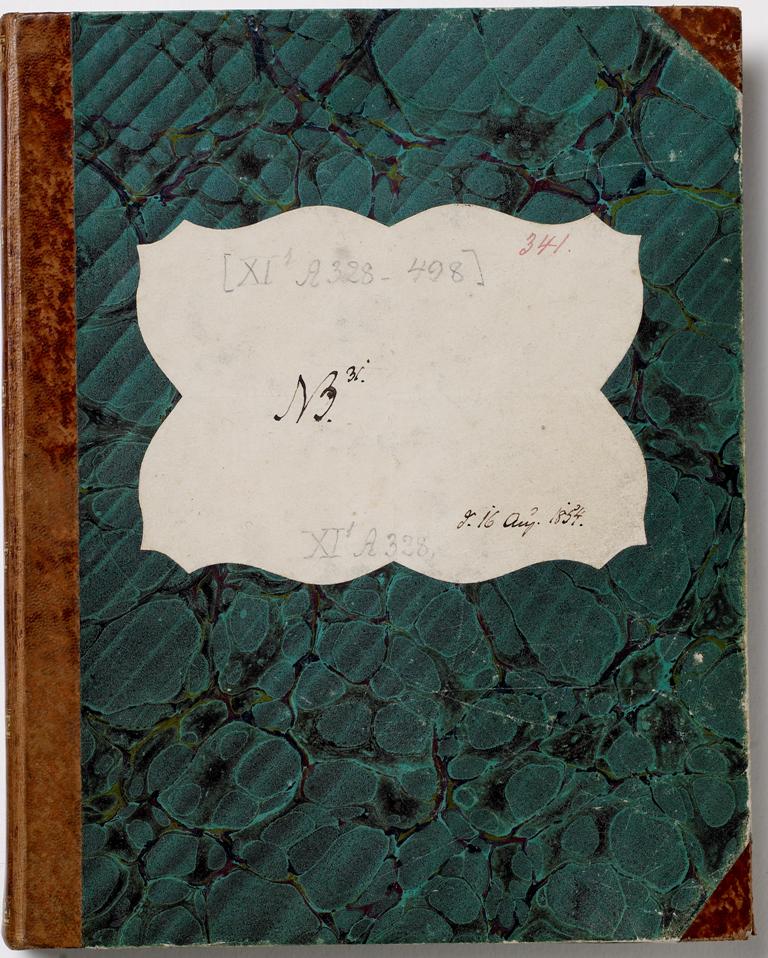 341.
[XI¹ A 328 - 498]
NB³¹.
d. 16 Aug. 1854.
XI¹ A 328,